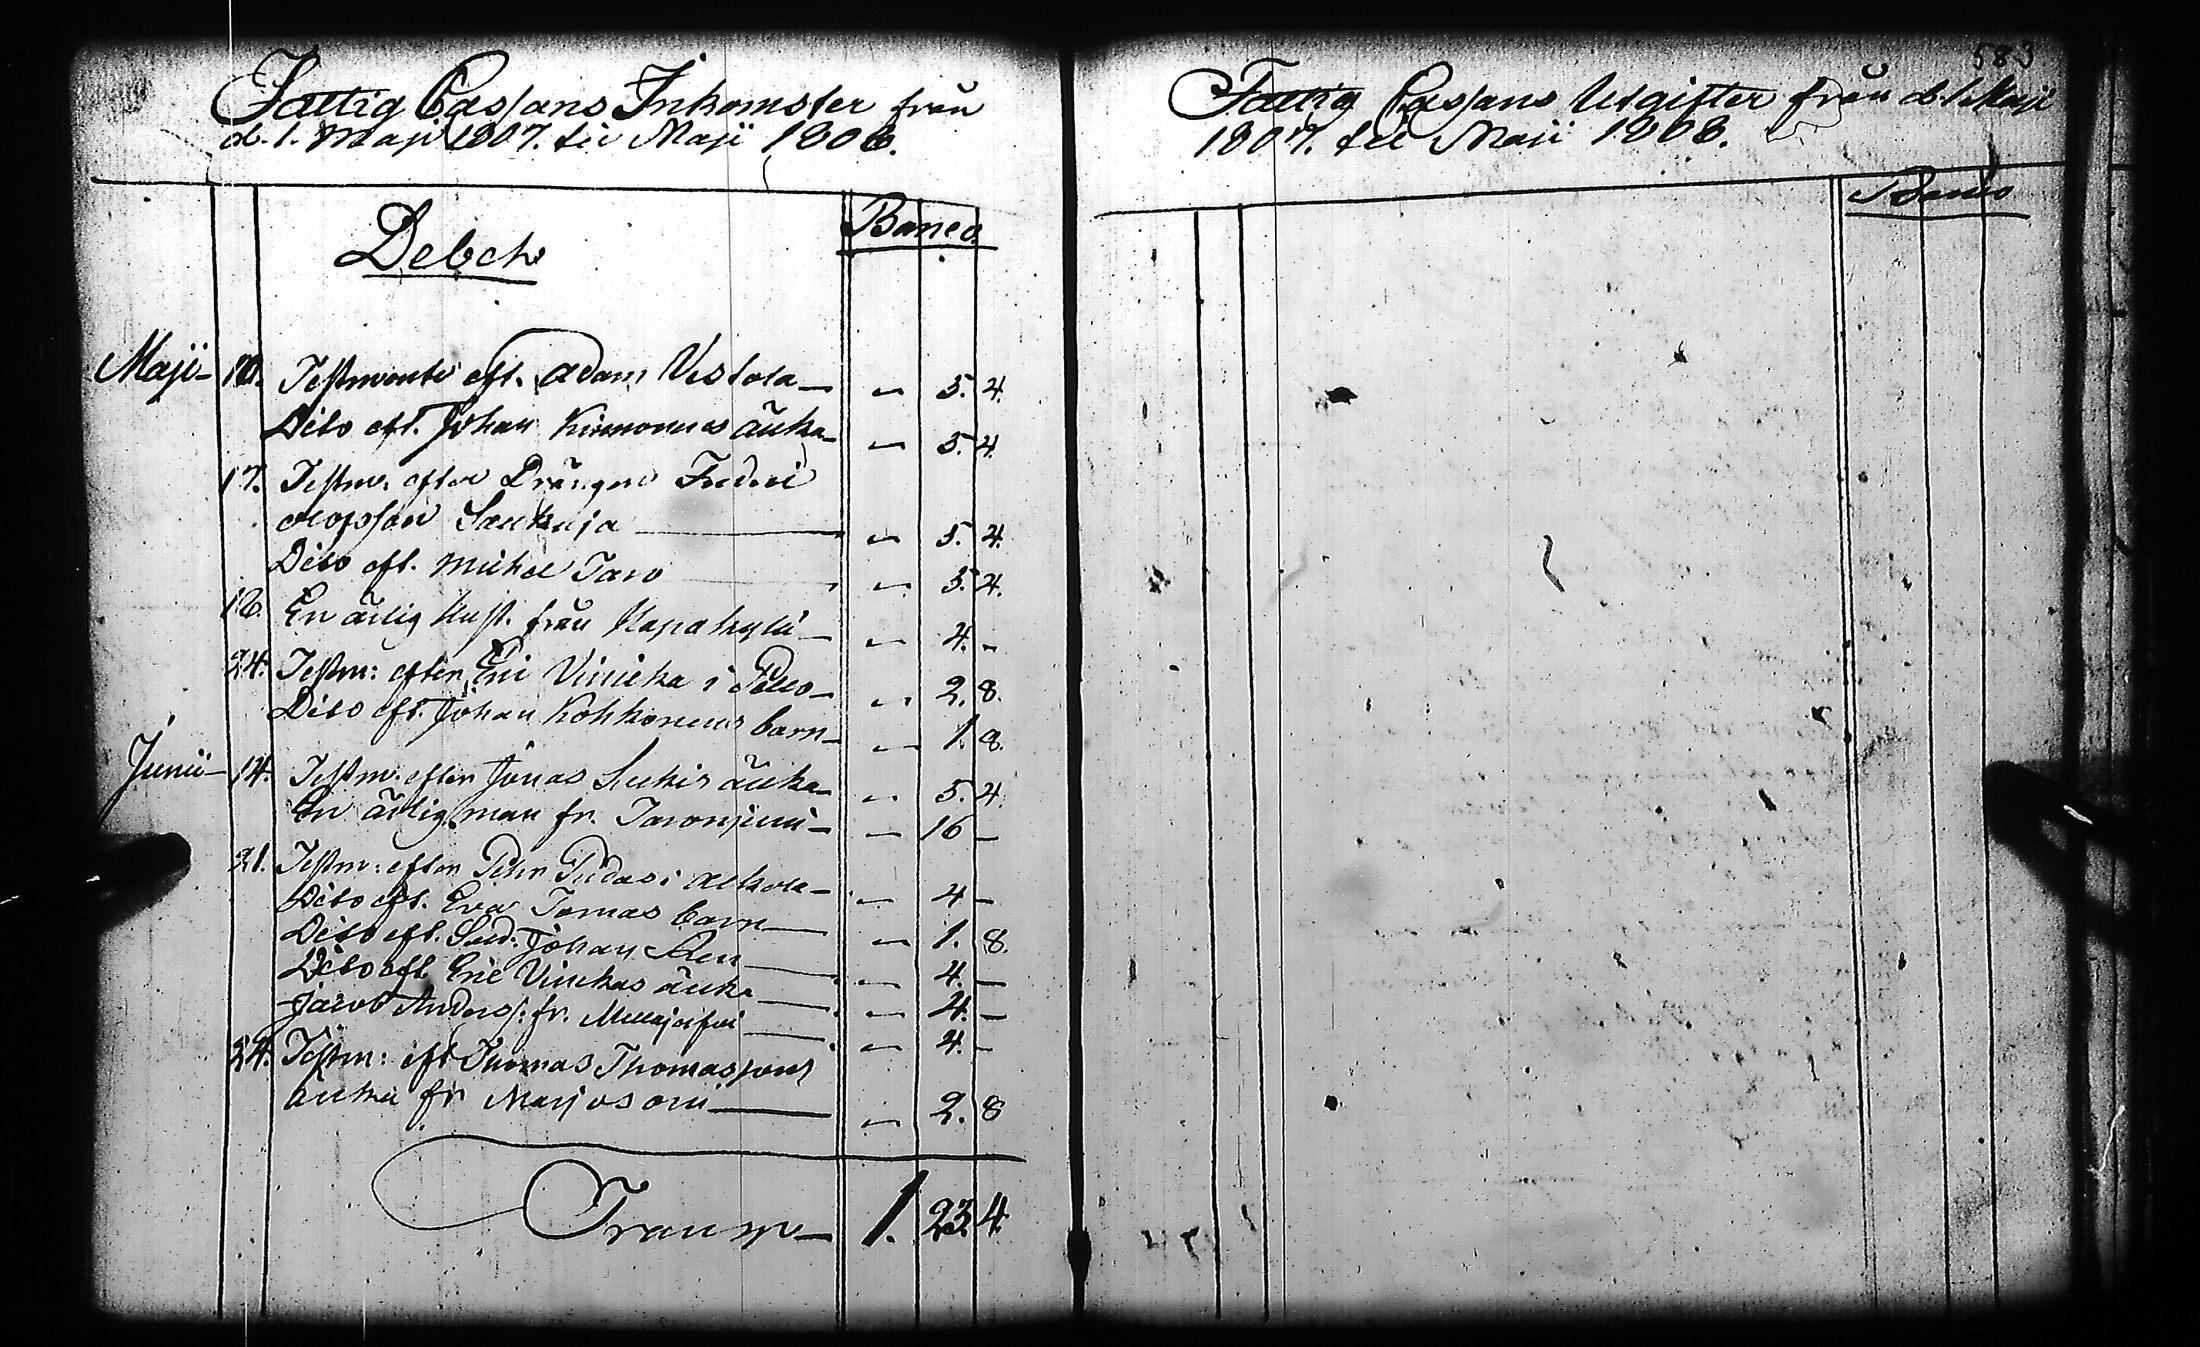 Fattig Cassans Inkomster från
d. 1. Maji 1807. till Maji 1808.
Debet
Banco
Maji 10. Testmente eft. Adam Vestola — " 5. 4.
Dito eft. Johan Kinnonens änka — " 5. 4.
17. Testm. efter Drängen Fredric
Olofsson — " 5. 4.
Dito eft. Michel Taro " 5. 4.
18. En ärlig Hust. från — " 4. -
24. Testm: efter Eric Vinicka i Pello — " 2. 8.
Dito eft. Johan Kohkonens barn — " 1. 8.
Junii 14. Testm. efter Jonas änka — " 5. 4.
En ärlig man fr. — " 16 -
21. Testm: efter Petter Pudas i — " 4 -
Dito eft. Eva Tornas barn — " 1. 8.
Dito eft. Sold: Johan — " 4. -
Dito eft. Eric Vinckas änka — " 4. -
Jacob Anders: fr. — " 4. -
24. Testm: eft Thomas Thomassons
änka fr Marjosari — " 2. 8
Transp — 1. 23. 4.
583
Fattig Cassans Utgifter från d. 1 Maji
1807. till Maji 1808.
Banco